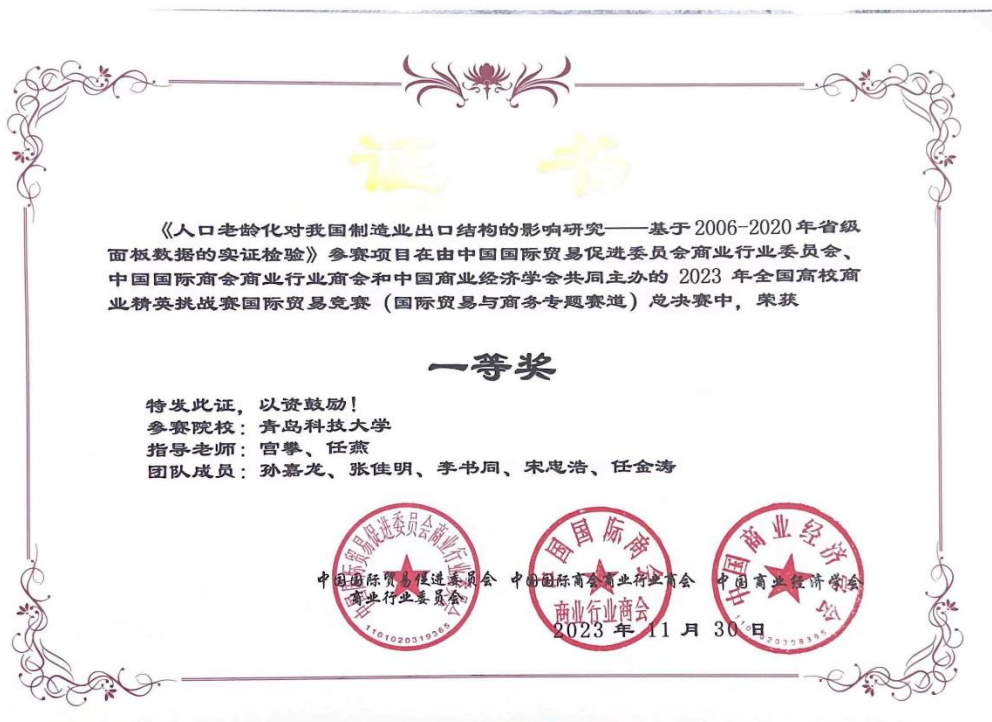 证 书
《人口老龄化对我国制造业出口结构的影响研究——基于 2006-2020 年省级
面板数据的实证检验》参赛项目在由中国国际贸易促进委员会商业行业委员会、
中国国际商会商业行业商会和中国商业经济学会共同主办的 2023 年全国高校商
业精英挑战赛国际贸易竞赛（国际贸易与商务专题赛道）总决赛中，荣获
一等奖
特发此证，以资鼓励！
参赛院校：青岛科技大学
指导老师：宫攀、任燕
团队成员：孙嘉龙、张佳明、李书同、宋忠浩、任金涛
中国国际贸易促进委员会
商业行业委员会
中国国际商会商业行业商会
中国商业经济学会
2023 年 11 月 30 日
中国国际贸易促进委员会商业行业委员会
1101020319365
中国国际商会
商业行业商会
中国商业经济学会